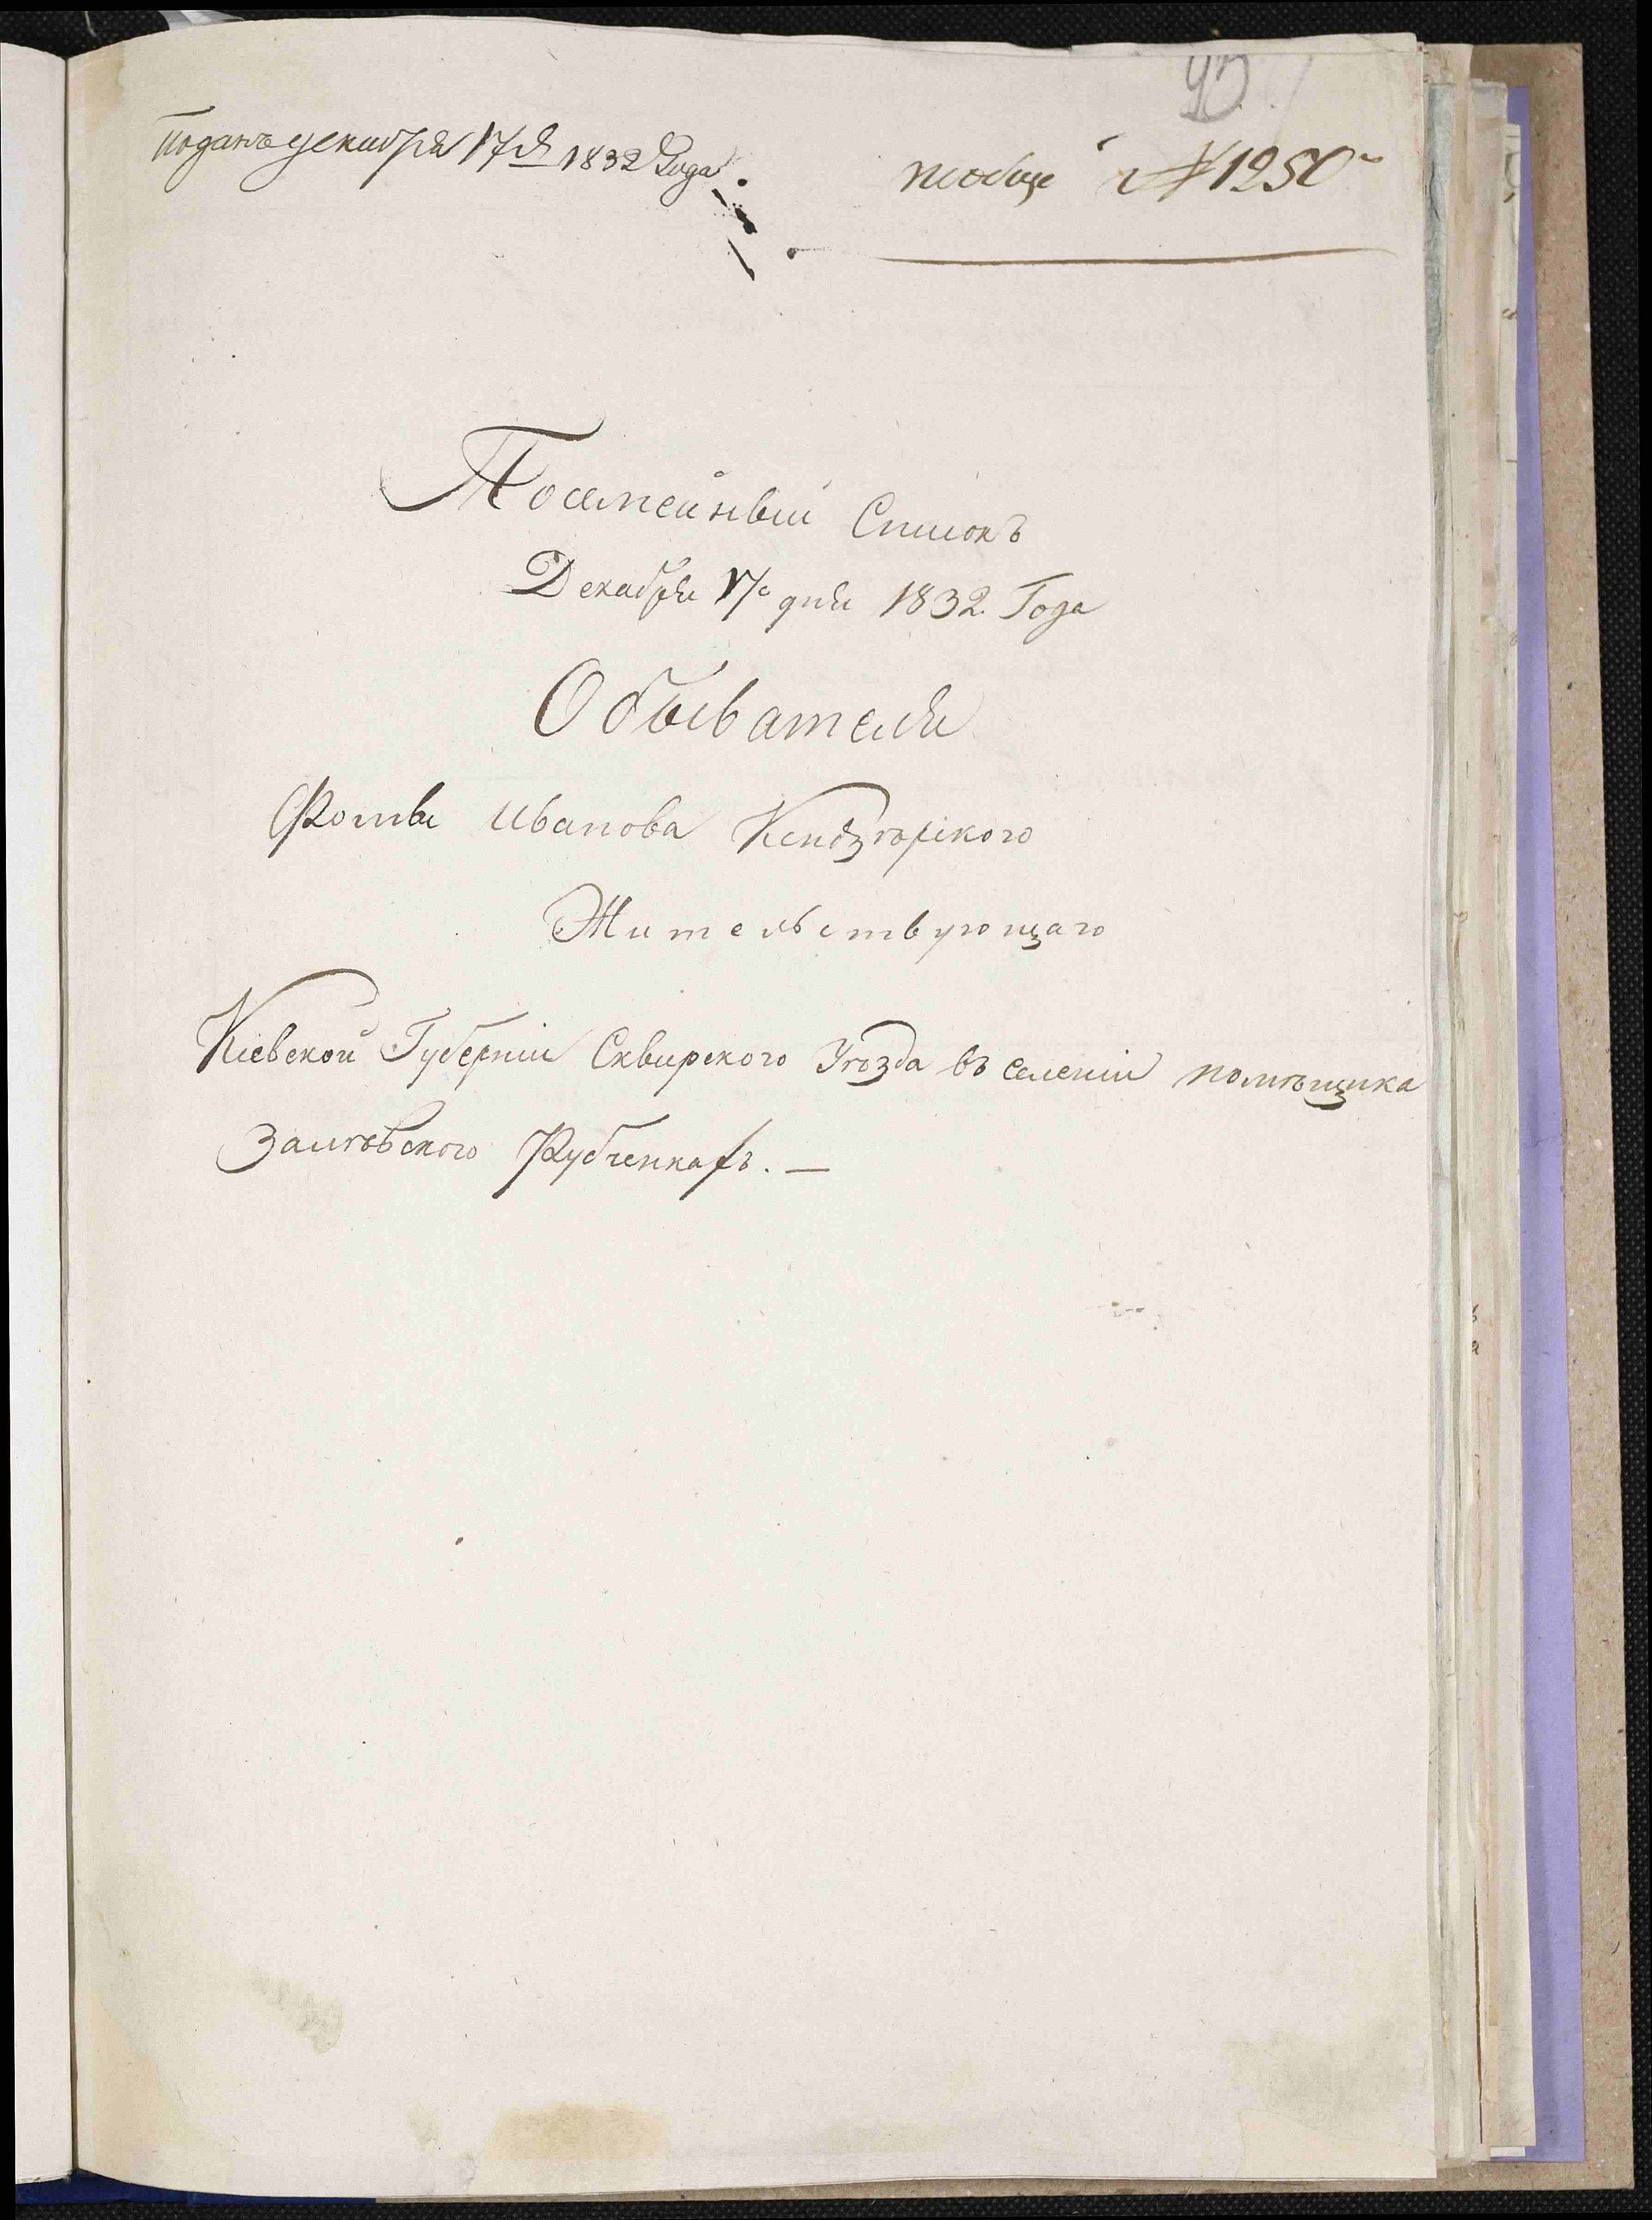 93
Поданъ декабря 17 д 1832 Года.
№ 1250
Посемейный Списокъ
Декабря 17 дня 1832. Года
Обывателя
Фомы Иванова Кендзѣрского
Жительствующаго
Кіевской Губерніи Сквирского Уѣзда въ селеніи помѣщика
Залѣвского Рубченкахъ. —